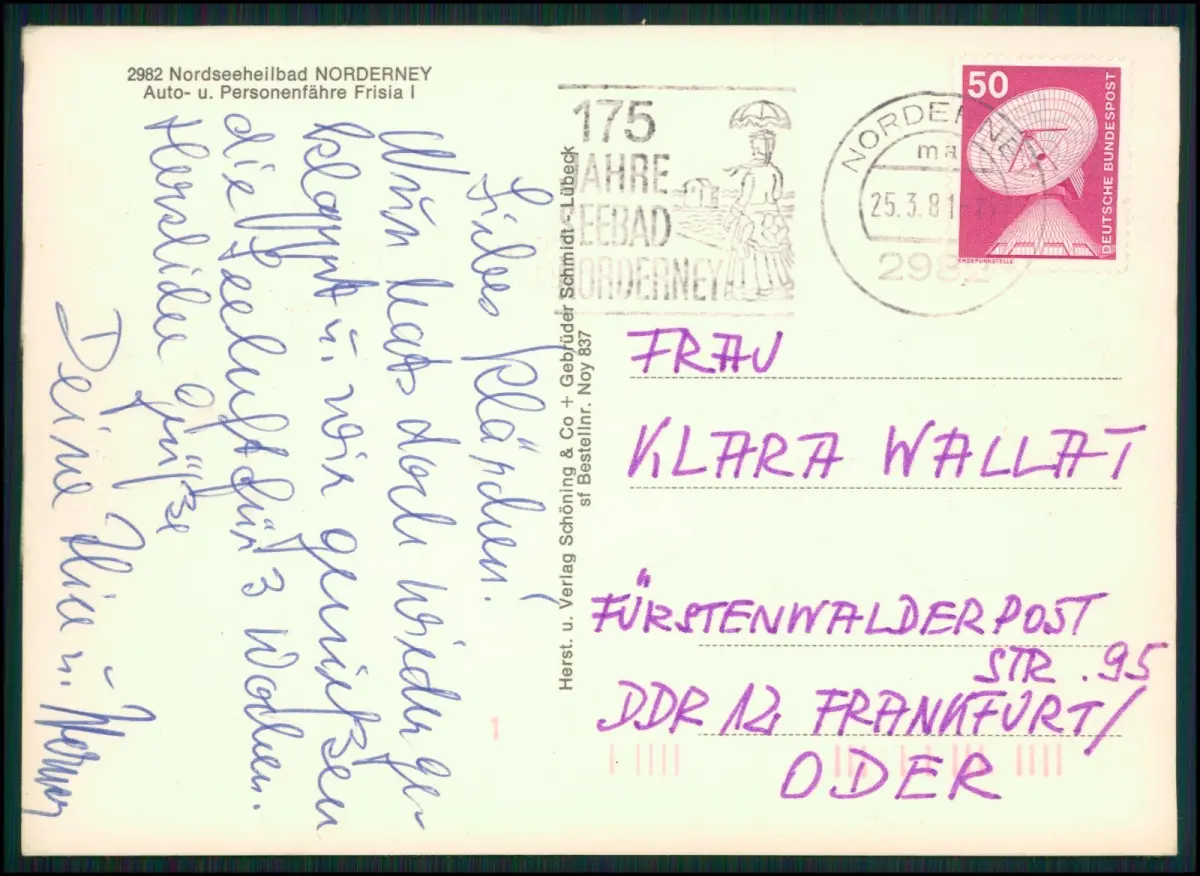 2982 Nordseeheilbad NORDERNEY
Auto- u. Personenfähre Frisia I
Liebes Klärchen!
Nun hats doch wieder ge-
klappt u. wir genießen
die Seeluft für 3 Wochen.
Herzliche Grüße
Deine u.
Herst. u. Verlag Schöning & Co + Gebrüder Schmidt - Lübeck
sf Bestellnr. Noy 837
175
JAHRE
SEEBAD
NORDERNEY
NORDERNEY
ma
25.3.81
2982
50
DEUTSCHE BUNDESPOST
ERDEFUNKSTELLE
FRAU
KLARA WALLAT
FÜRSTENWALDERPOST
STR. 95
DDR 12 FRANKFURT/
ODER
1